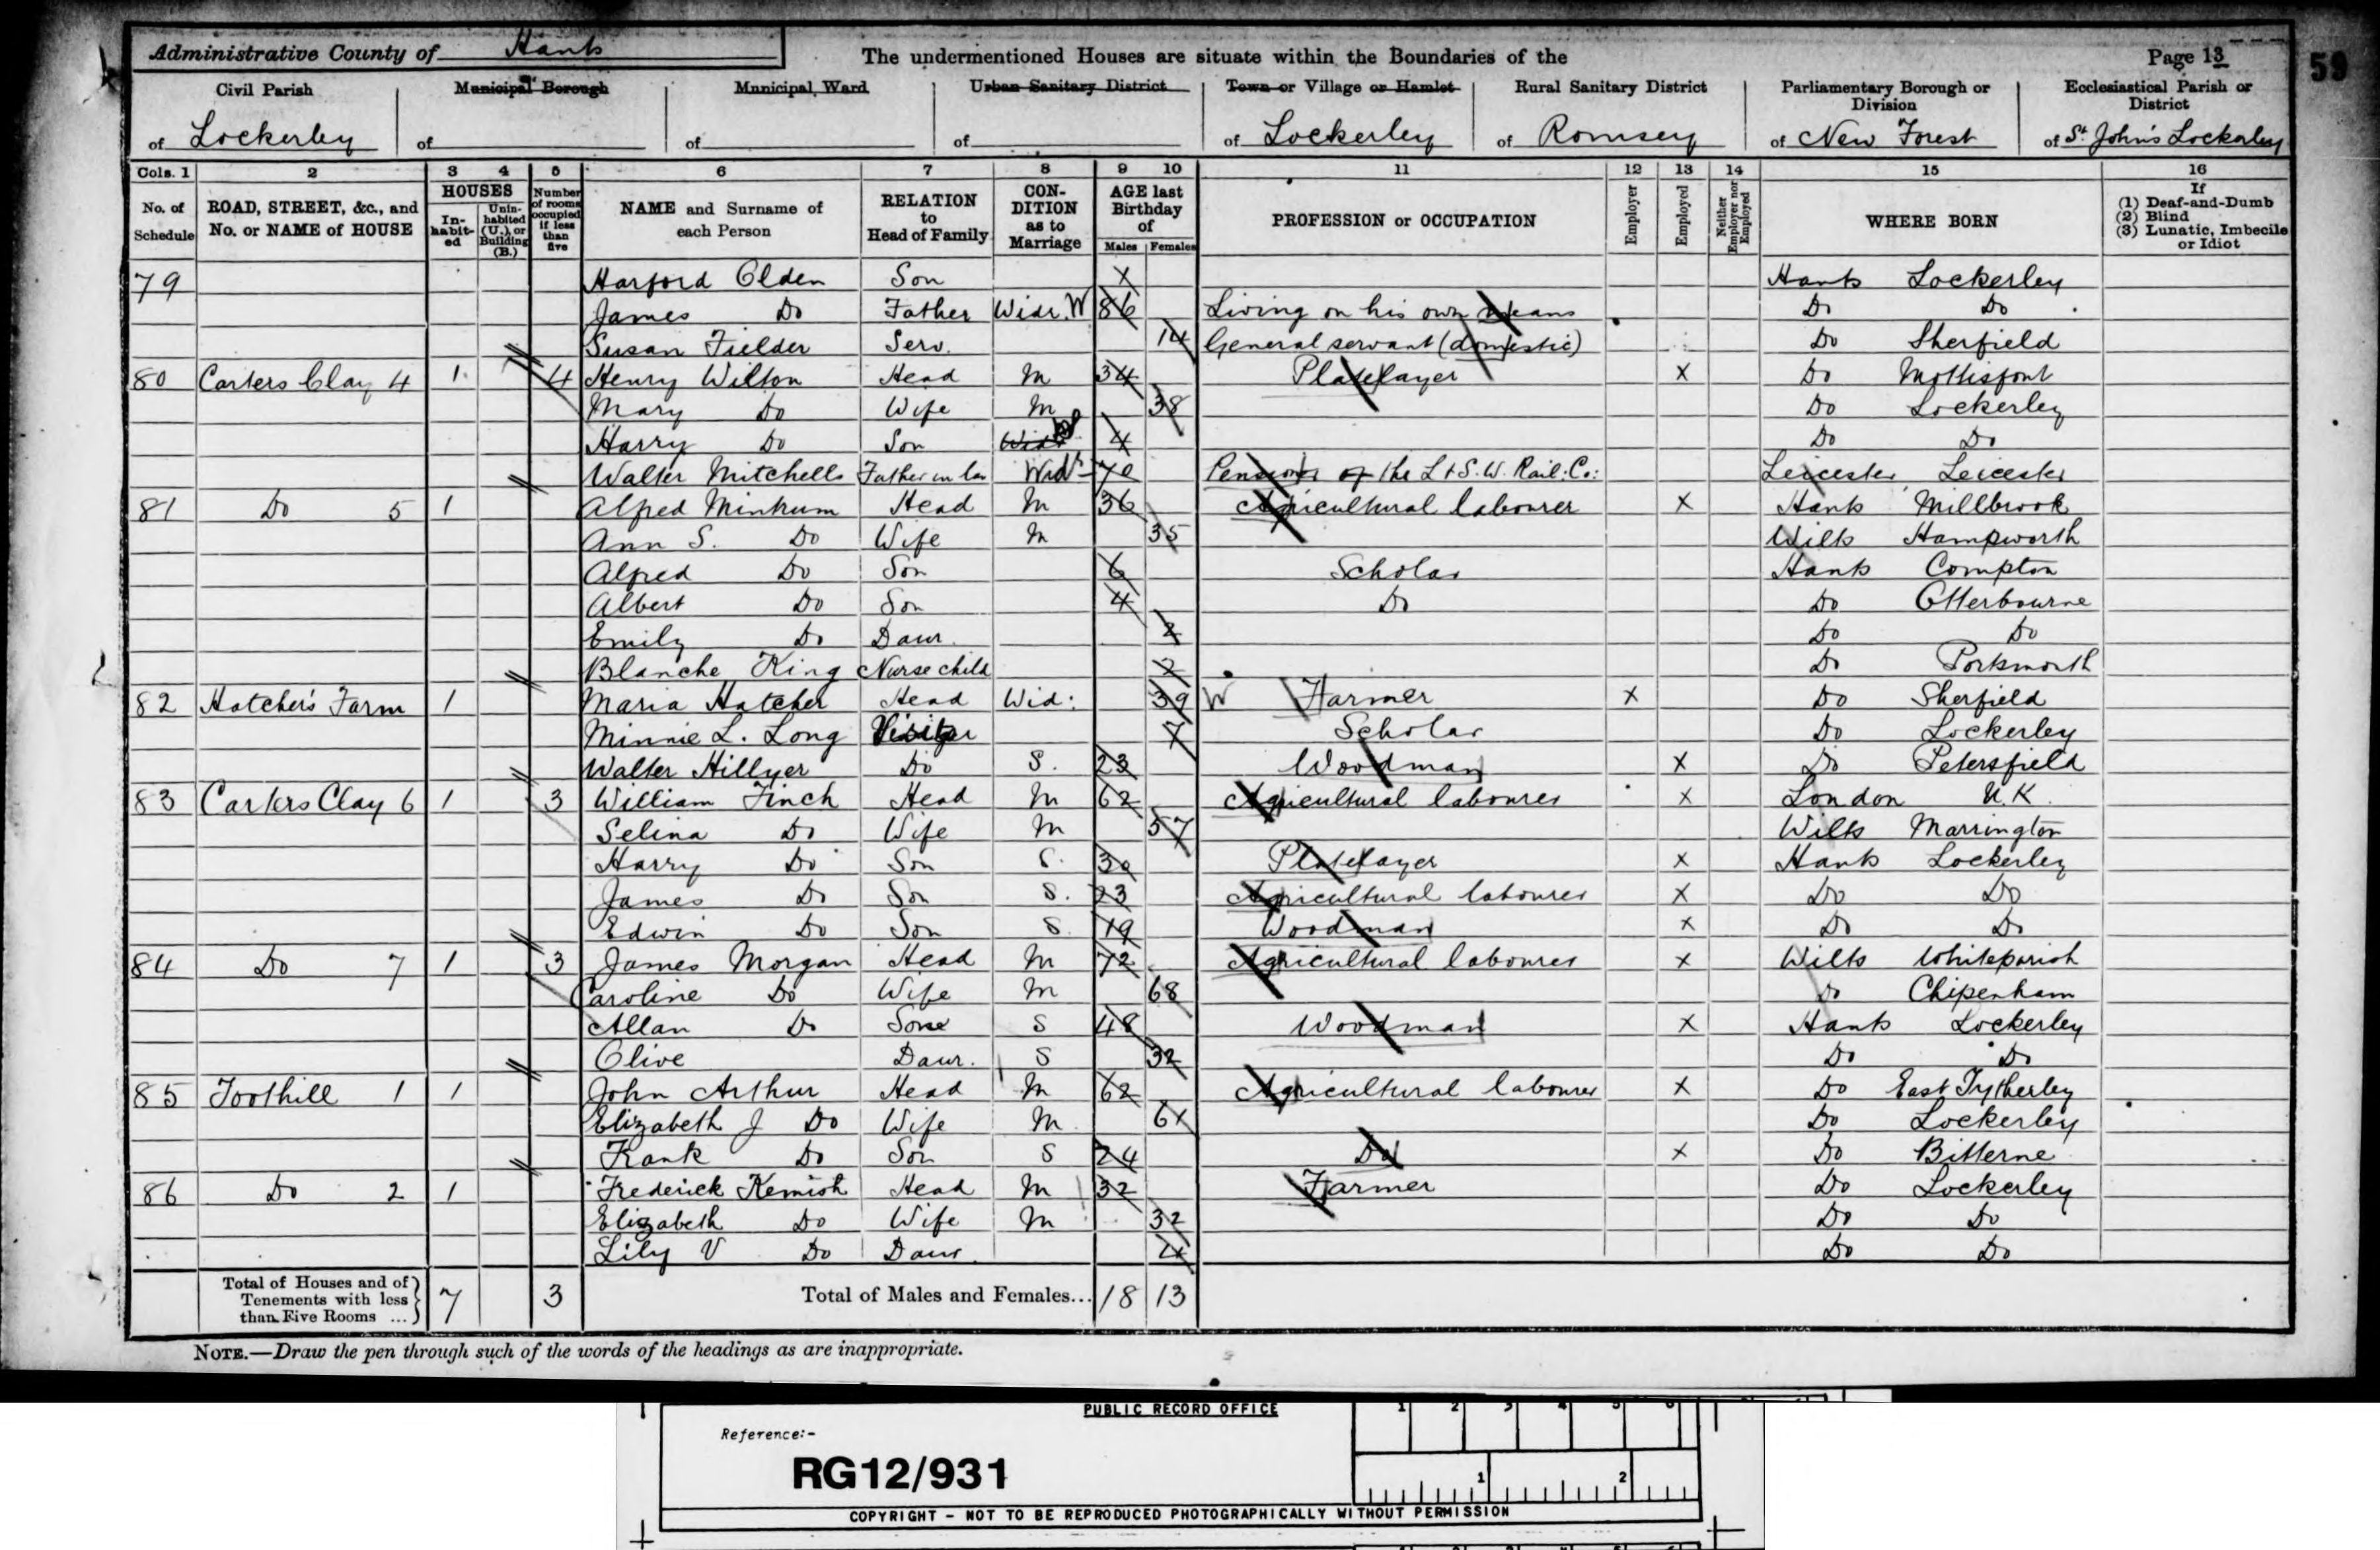 Administrative County of Hants The undermentioned Houses are situate within the Boundaries of the Page 13 59
Civil Parish Municipal Borough Municipal Ward Urban Sanitary District Town or Village or Hamlet Rural Sanitary District Parliamentary Borough or Division Ecclesiastical Parish or District
of Lockerley of of of of Lockerley of Romsey of New Forest of St John's Lockerley
Cols. 1 2 3 4 5 6 7 8 9 10 11 12 13 14 15 16
No. of Schedule ROAD, STREET, &c., and No. or NAME of HOUSE HOUSES In-habit-ed Unin-habited (U.), or Building (B.) Number of rooms occupied if less than five NAME and Surname of each Person RELATION to Head of Family CON-DITION as to Marriage AGE last Birthday of Males Females PROFESSION or OCCUPATION Employer Employed Neither Employer nor Employed WHERE BORN If (1) Deaf-and-Dumb (2) Blind (3) Lunatic, Imbecile or Idiot
79 Harford Olden Son X Hants Lockerley
James Do Father Widr. W 86 Living on his own Means Do Do
Susan Fielder Serv. 14 General servant (domestic) Do Sherfield
80 Carters Clay 4 1 4 Henry Wilton Head M 34 Platelayer X Do Mottisfont
Mary Do Wife M 38 Do Lockerley
Harry Do Son 4 Do Do
Walter Mitchells Father in law Widr 70 Pensioner of the L & S. W. Rail: Co: Leicester Leicester
81 Do 5 1 Alfred Minhum Head M 36 Agricultural labourer X Hants Millbrook
Ann S. Do Wife M 35 Wilts Hampworth
Alfred Do Son 6 Scholar Hants Compton
Albert Do Son 4 Do Do Otterbourne
Emily Do Daur. 2 Do Do
Blanche King Nurse child 2 Do Portsmouth
82 Hatcher's Farm 1 Maria Hatcher Head Wid: 39 W Farmer X Do Sherfield
Minnie L. Long Visitor 7 Scholar Do Lockerley
Walter Hillyer Do S. 23 Woodman X Do Petersfield
83 Carters Clay 6 1 3 William Finch Head M 62 Agricultural labourer X London N.K.
Selina Do Wife M 57 Wilts Marrington
Harry Do Son S. 30 Platelayer X Hants Lockerley
James Do Son S. 23 Agricultural labourer X Do Do
Edwin Do Son S. 19 Woodman X Do Do
84 Do 7 1 3 James Morgan Head M 72 Agricultural labourer X Wilts Whiteparish
Caroline Do Wife M 68 Do Chipenham
Allan Do Son S 48 Woodman X Hants Lockerley
Olive Daur. S 32 Do Do
85 Foothill 1 1 John Arthur Head M 62 Agricultural labourer X Do East Tytherley
Elizabeth J Do Wife M 61 Do Lockerley
Frank Do Son S 24 Do X Do Bitterne
86 Do 2 1 Frederick Kemish Head M 32 Farmer Do Lockerley
Elizabeth Do Wife M 32 Do Do
Lily V Do Daur. 4 Do Do
Total of Houses and of Tenements with less than Five Rooms ... 7 3 Total of Males and Females... 18 13
NOTE.—Draw the pen through such of the words of the headings as are inappropriate.
PUBLIC RECORD OFFICE 1 2 3 4 5 6
Reference:-
RG12/931 1 2
COPYRIGHT - NOT TO BE REPRODUCED PHOTOGRAPHICALLY WITHOUT PERMISSION